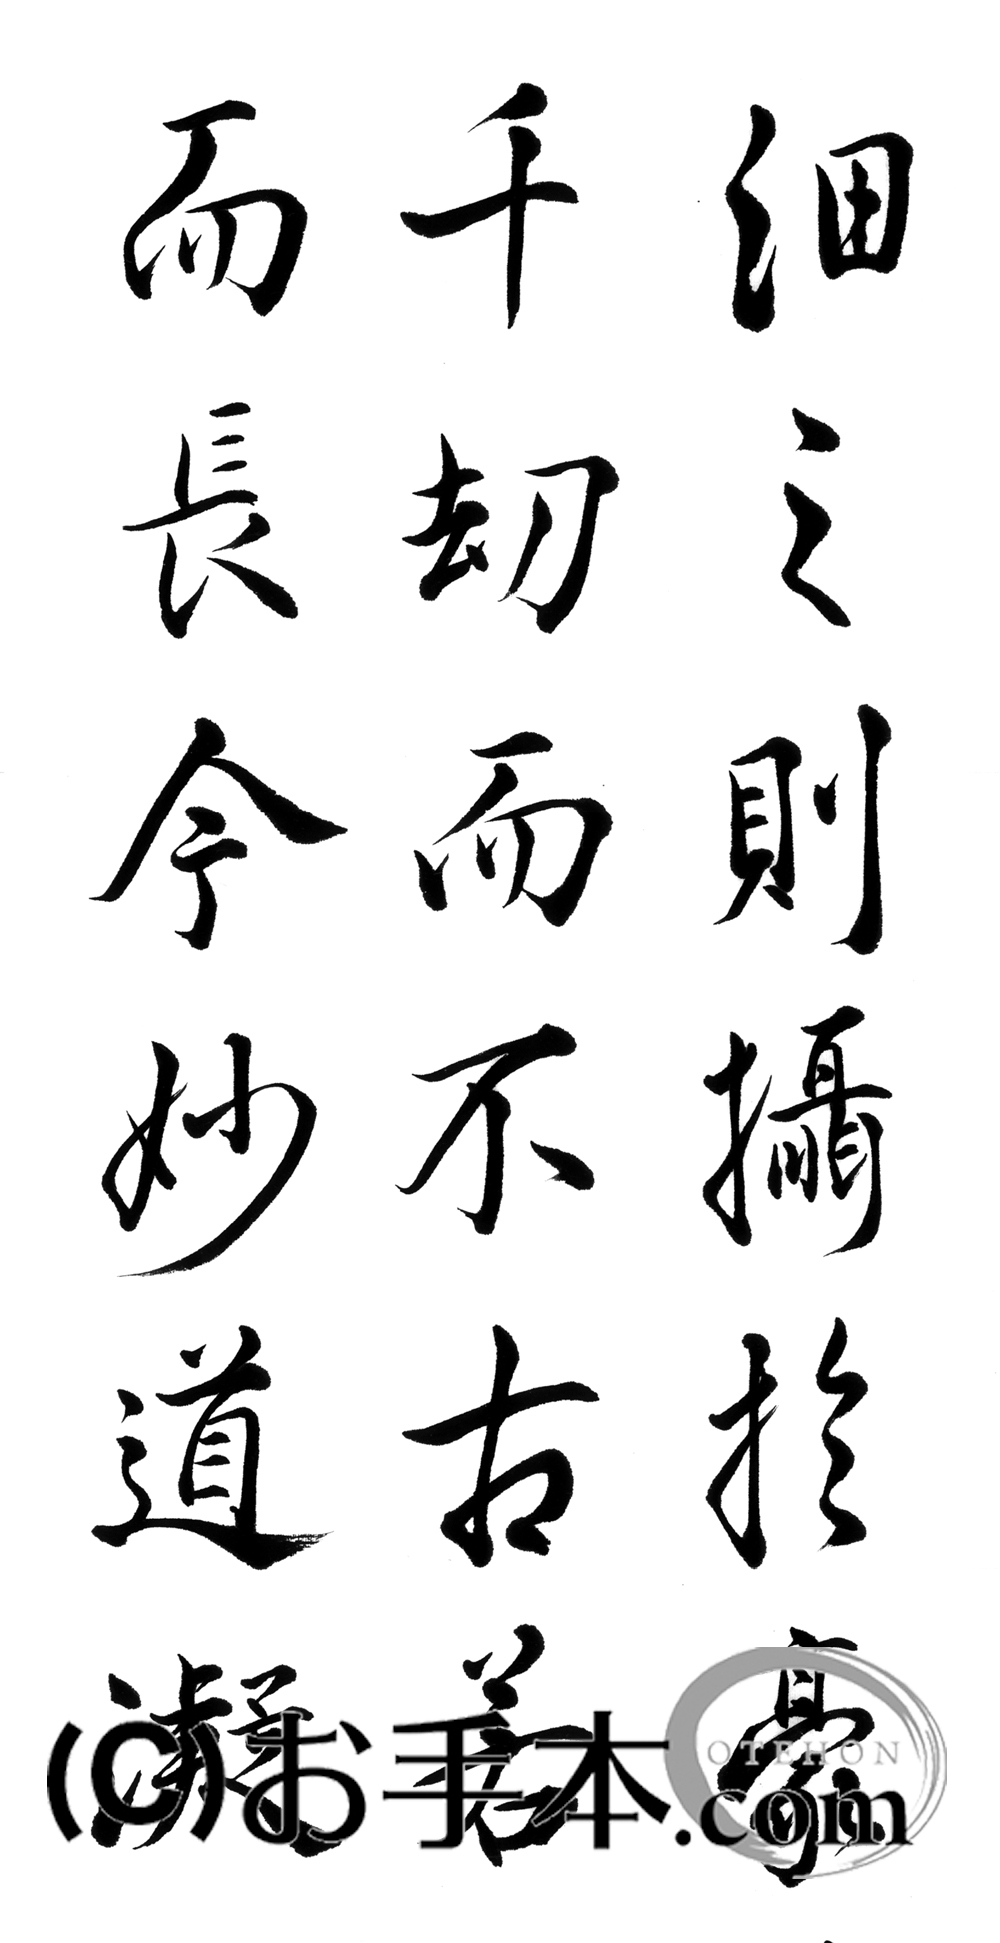 細之則攝於毫
千劫而不古若
而長今妙道凝
(C)お手本.com
OTEHON